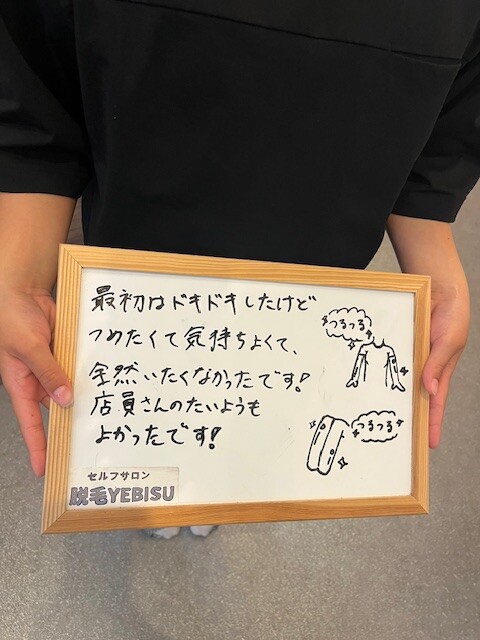 最初はドキドキしたけど
つめたくて気持ちよくて、
全然いたくなかったです!
店員さんのたいようも
よかったです!
つるつる
つるつる
セルフサロン
脱毛YEBISU